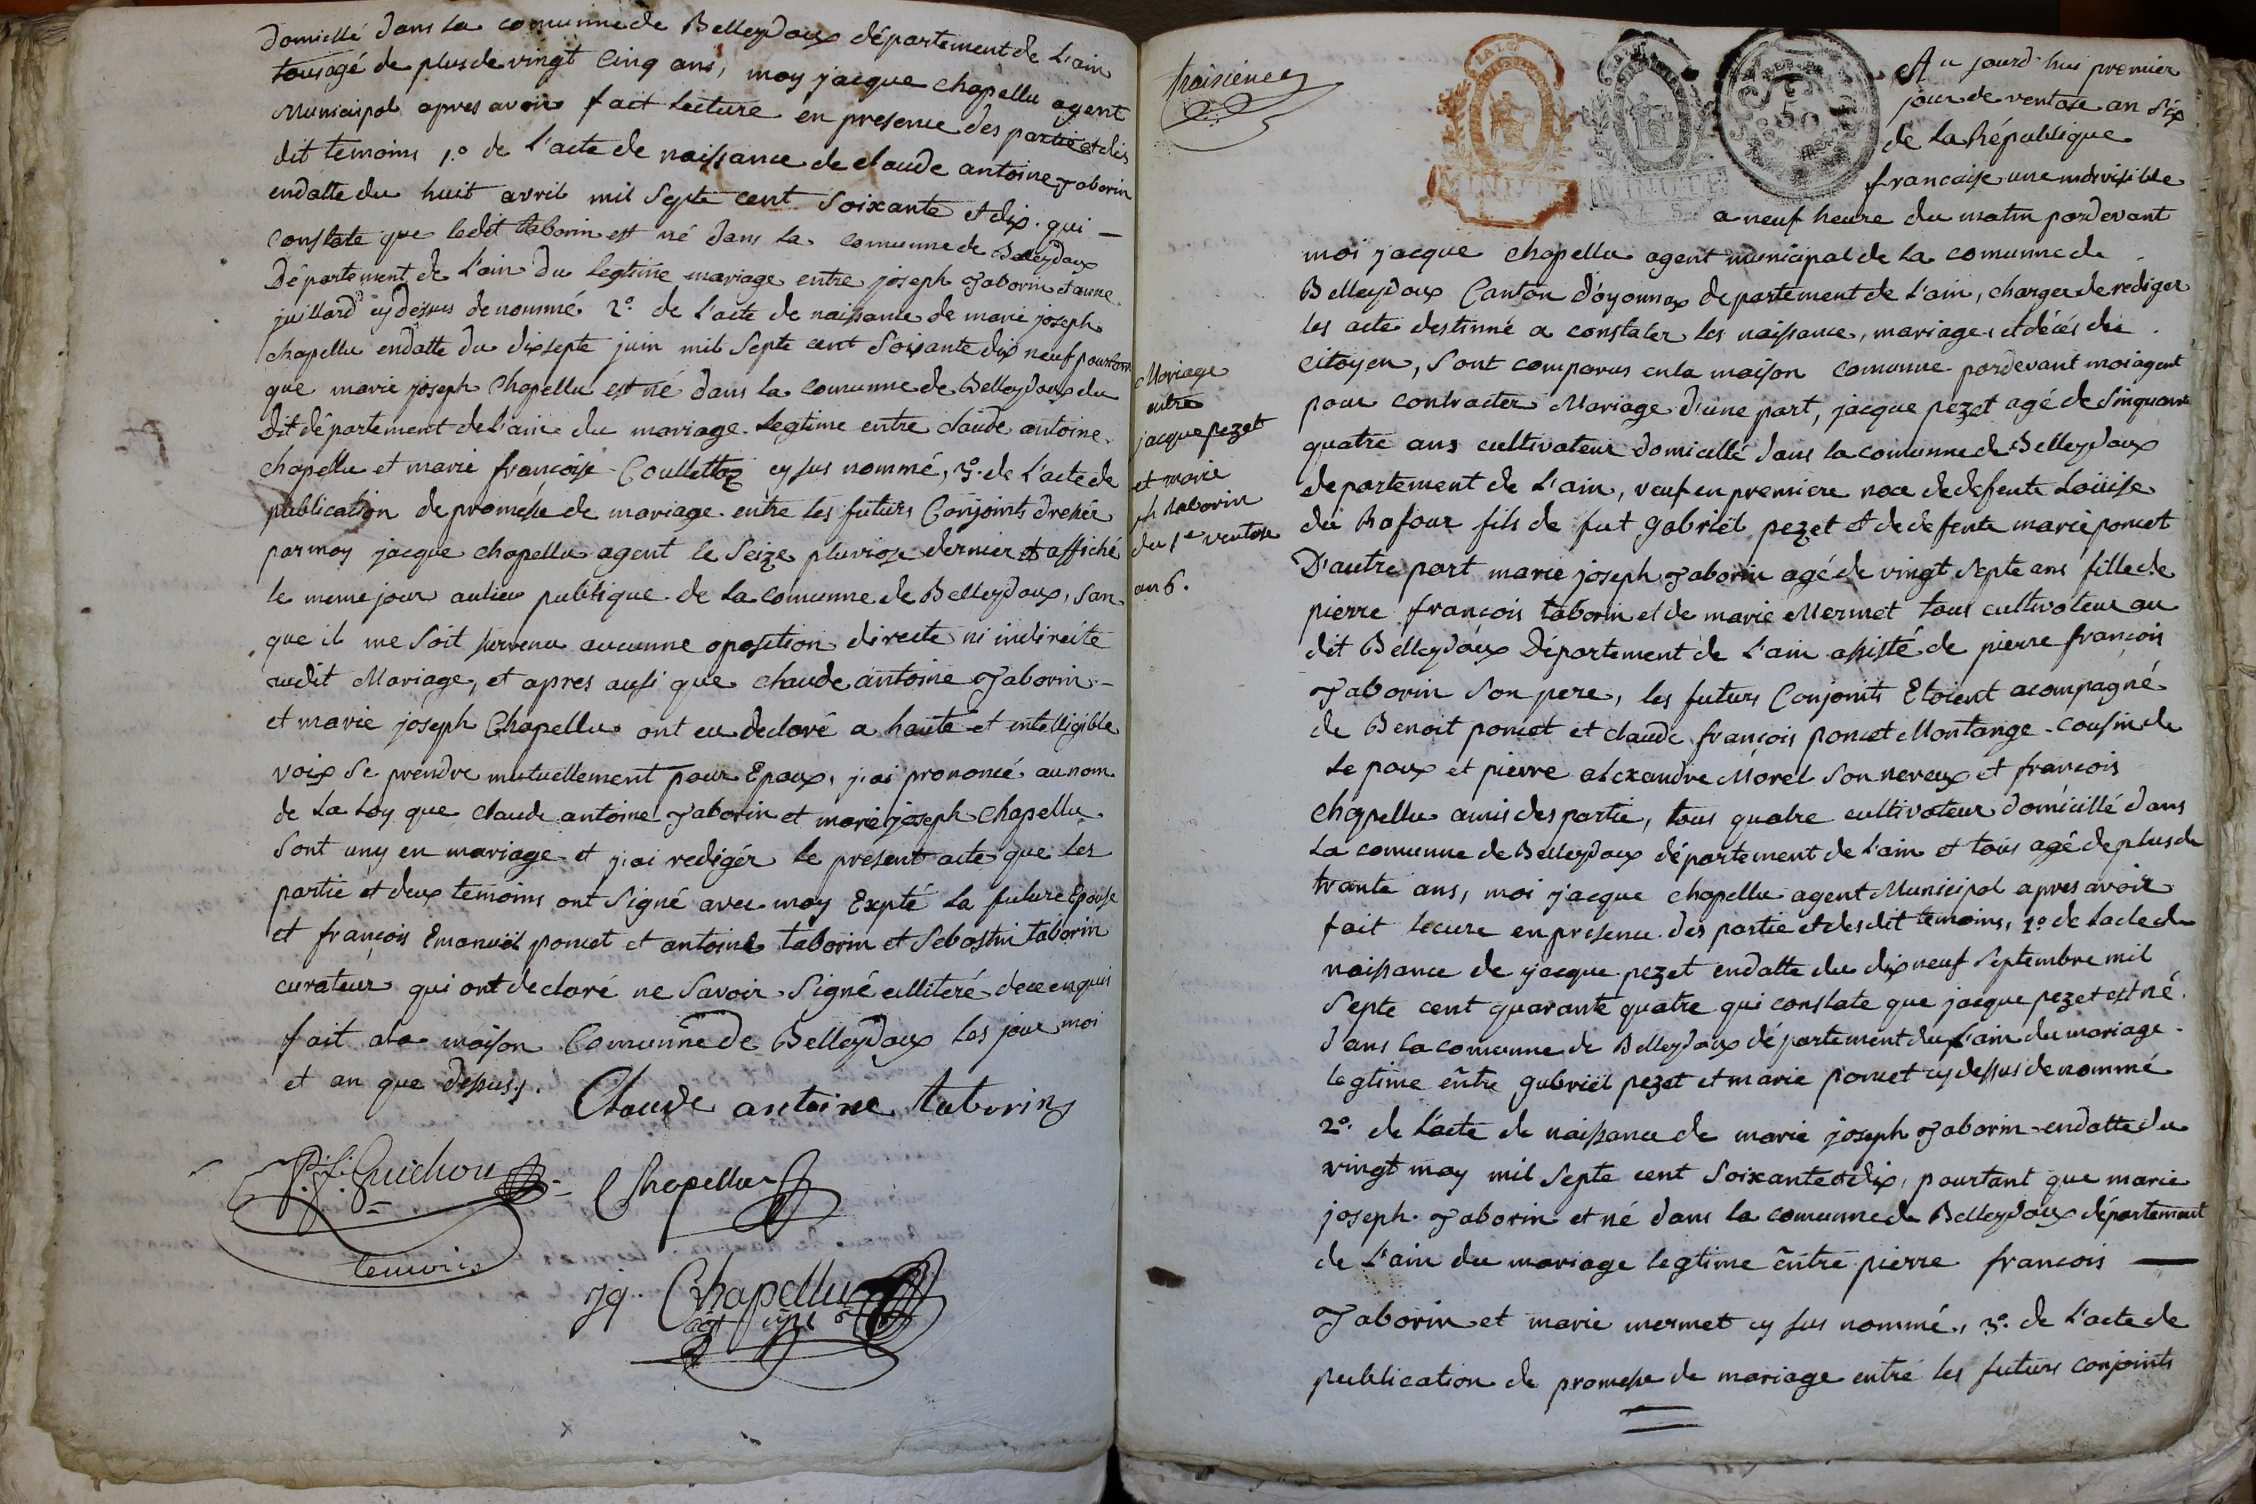 domicillé dans la comunne de Belleydoux département de L'ain
tous agé de plus de vingt Cinq ans, moy jacque chapellu agent
Municipal apres avoir fait lecture en presence des partie et des
dit temoins 1.o de L'acte de naissance de claude antoine Taborin
endatte du huit avril mil Septe cent Soixante et dix. qui —
Constate que ledit taborin est né dans la comunne de Belleydoux
Département de L'ain du legtime mariage entre joseph Taborin et anne
juillard cy dessus denommé 2.o de L'acte de naissance de marie joseph
chapellu endatte du dix septe juin mil Septe cent Soixante dix neuf pourtant
que marie joseph Chapellu est né dans la comunne de Belleydoux du
dit département de L'ain du mariage Legtime entre claude antoine
chapellu et marie françoise Coullettoz cy sus nommé, 3.o de L'acte de
publication de promesse de mariage entre les futurs Conjoints dressér
par moy jacque chapellu agent le Seize pluviose dernier et affiché
le meme jour au lieu publique de la comunne de Belleydoux, San
que il me Soit survenu aucunne oposition directe ni indirecte
audit Mariage, et apres ausi que claude antoine Taborin —
et marie joseph Chapellu ont eu declaré a haute et intelligible
voix Se prendre mutuellement pour Epoux, j'ai prononcé au nom
de la Loy que claude antoine Taborin et marie joseph chapellu
Sont uny en mariage et j'ai redigér le présent acte que les
partie et deux temoins ont Signé avec moy Expté la future Epouse
et françois Emanuël poncet et antoine taborin et Sebastin taborin
curateur qui ont declaré ne Savoir Signé illiteré de ce enquis
fait a la maison Comunne de Belleydoux les jour moi
et an que dessus.
Claude antoine taborin
P. f. Guichon
Chapellu
temoin
Jq. Chapellu
agt
troisiéme
Au jourd'hui premier
jour de ventose an Six
de la République
francaise une indivisible
a neuf heure du matin pardevant
moi jacque chapellu agent municipal de la comunne de
Belleydoux Canton d'oyonnax departement de L'ain, charger de rediger
les acte destinné a constater les naissance, mariage et décés des
citoyen, Sont comparus en la maison comunne pardevant moi agent
pour contracter Mariage d'une part, jacque pezet agé de Sinquante
quatre ans cultivateur domicillé dans la comunne de Belleydoux
departement de L'ain, veuf en premiere noce de defente Loüise
du Rafour fils de fut gabriël pezet et de defente marie poncet
D'autre part marie joseph Taborin agé de vingt Septe ans fille de
pierre françois taborin et de marie Mermet tous cultivateur au
dit Belleydoux Département de L'ain assisté de pierre françois
Taborin Son pere, les futurs Conjoints Etoient acompagné
de Benoit poncet et claude françois poncet Montange cousin de
Le poux et pierre alexandre Morel Son neveux et françois
chapellu amis des partie, tous quatre cultivateur domicillé dans
la comunne de Belleydoux département de L'ain et tous agé de plus de
trante ans, moi jacque chapellu agent Municipal apres avoir
fait lecure en presence des partie et des dit temoins, 1.o de Lacte de
naissance de jacque pezet endatte du dix neuf Septembre mil
Septe cent quarante quatre qui constate que jacque pezet est né
dans la comunne de Belleydoux département du L'ain du mariage
legtime entre gabriël pezet et marie poncet cy dessus denommé
2.o de L'acte de naissance de marie joseph Taborin endatte du
vingt may mil Septe cent Soixante et dix, pourtant que marie
joseph Taborin et né dans la comunne de Belleydoux département
de L'ain du mariage legtime entre pierre francois —
Taborin et marie mermet cy sus nommé, 3.o de L'acte de
publication de promesse de mariage entre les futurs conjoints
Mariage
entre
jacque pezet
et marie
jh taborin
du 1er ventose
an 6.
MINUTE